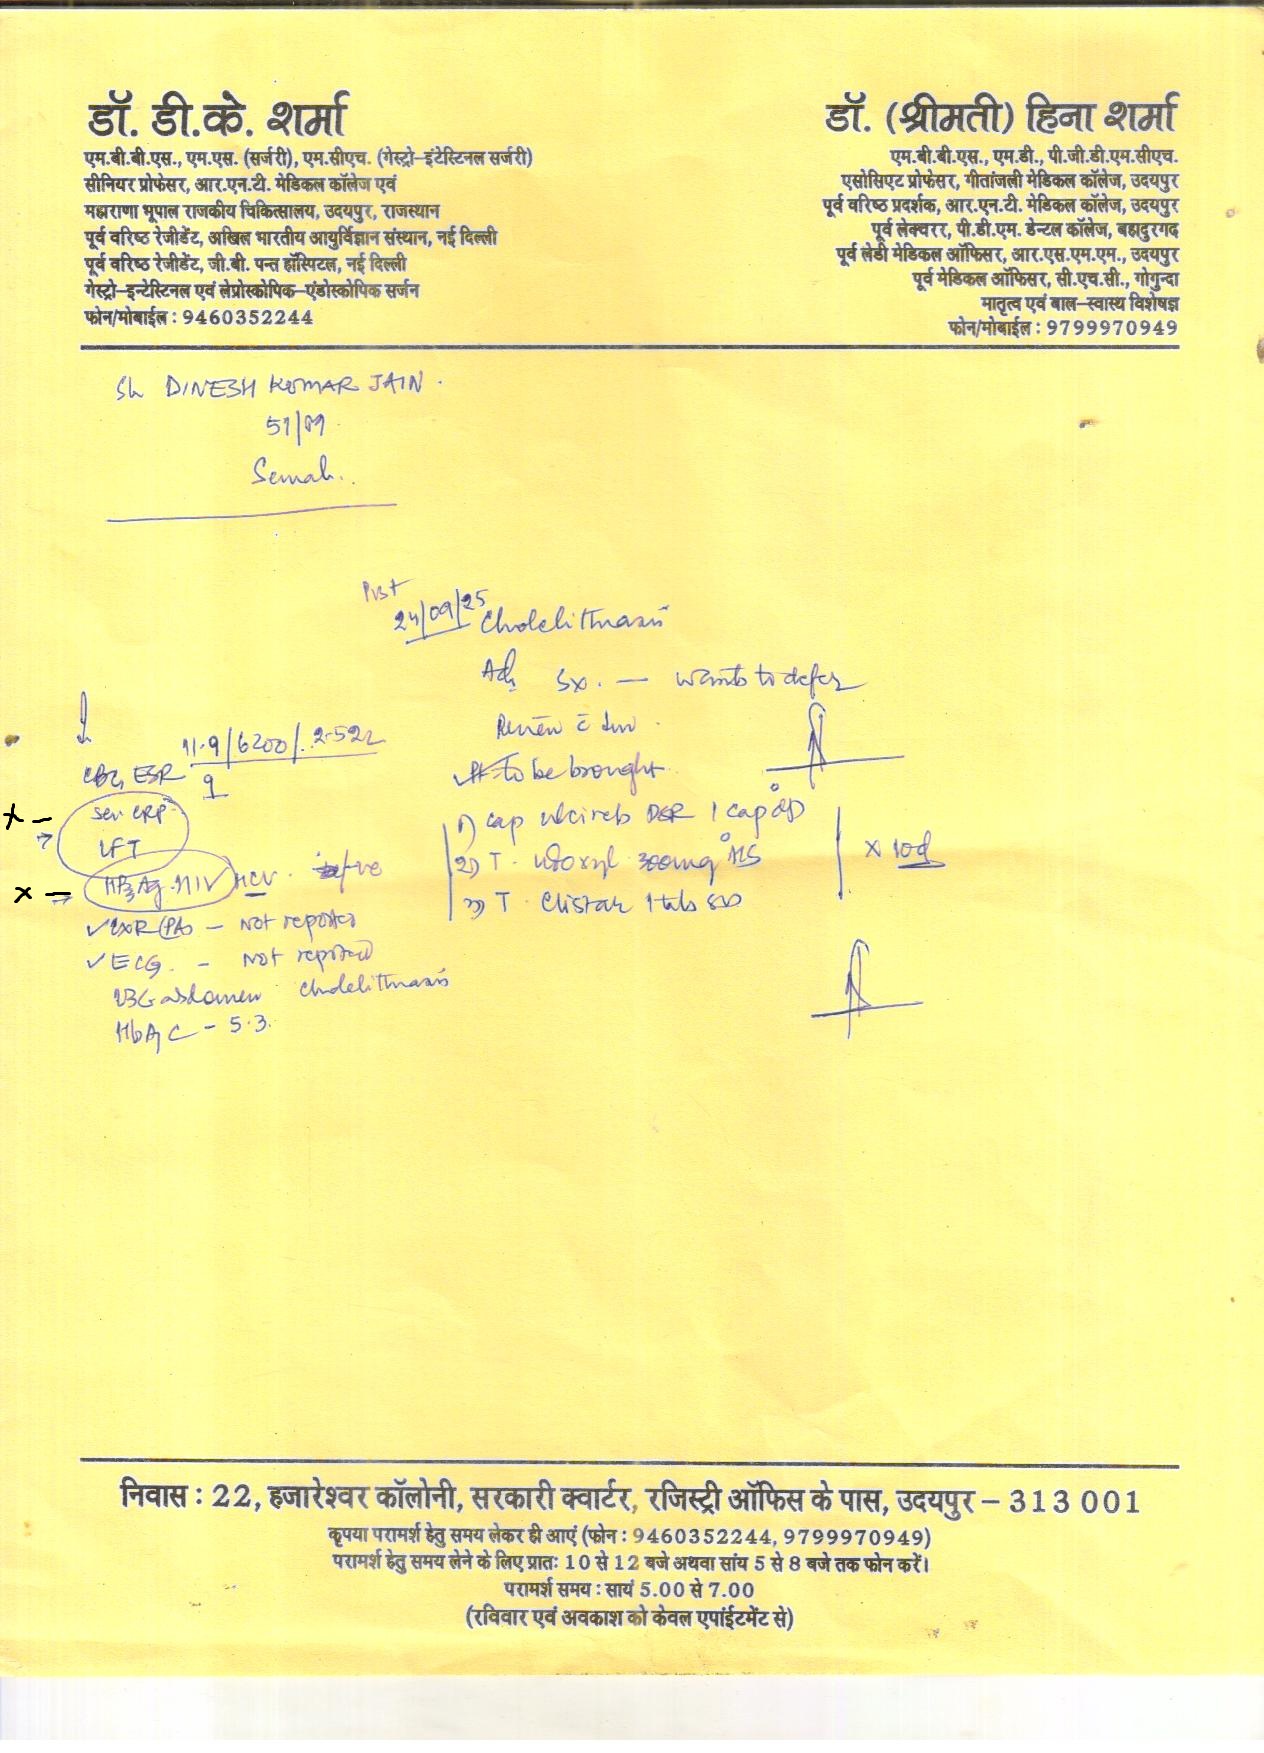 डॉ. डी.के. शर्मा
एम.बी.बी.एस., एम.एस. (सर्जरी), एम.सीएच. (गेस्ट्रो-इंटेस्टिनल सर्जरी)
सीनियर प्रोफेसर, आर.एन.टी. मेडिकल कॉलेज एवं
महाराणा भूपाल राजकीय चिकित्सालय, उदयपुर, राजस्थान
पूर्व वरिष्ठ रेजीडेंट, अखिल भारतीय आयुर्विज्ञान संस्थान, नई दिल्ली
पूर्व वरिष्ठ रेजीडेंट, जी.बी. पन्त हॉस्पिटल, नई दिल्ली
गेस्ट्रो-इन्टेस्टिनल एवं लेप्रोस्कोपिक-एंडोस्कोपिक सर्जन
फोन/मोबाईल : 9460352244
डॉ. (श्रीमती) हिना शर्मा
एम.बी.बी.एस., एम.डी., पी.जी.डी.एम.सीएच.
एसोसिएट प्रोफेसर, गीतांजली मेडिकल कॉलेज, उदयपुर
पूर्व वरिष्ठ प्रदर्शक, आर.एन.टी. मेडिकल कॉलेज, उदयपुर
पूर्व लेक्चरर, पी.डी.एम. डेन्टल कॉलेज, बहादुरगढ
पूर्व लेडी मेडिकल ऑफिसर, आर.एस.एम.एम., उदयपुर
पूर्व मेडिकल ऑफिसर, सी.एच.सी., गोगुन्दा
मातृत्व एवं बाल-स्वास्थ विशेषज्ञ
फोन/मोबाईल : 9799970949
Sh DINESH KUMAR JAIN.
51/M
24/09/25 Cholelithiasis
Adv Sx. — wants to defer
Review c̄
to be brought
1) cap DSR 1 cap OD
2) T. 300mg HS
3) T. 1 tab
x 10d
11.9/6200/2.52
CBC, ESR 9
x - Ser CRP
LFT
x - HBsAg HIV HCV. -ve
✓ CXR (PA) - Not reported
✓ ECG. - Not reported
USG abdomen Cholelithiasis
HbA1C - 5.3.
निवास : 22, हजारेश्वर कॉलोनी, सरकारी क्वार्टर, रजिस्ट्री ऑफिस के पास, उदयपुर - 313 001
कृपया परामर्श हेतु समय लेकर ही आएं (फोन : 9460352244, 9799970949)
परामर्श हेतु समय लेने के लिए प्रातः 10 से 12 बजे अथवा सांय 5 से 8 बजे तक फोन करें।
परामर्श समय : सायं 5.00 से 7.00
(रविवार एवं अवकाश को केवल एपांईटमेंट से)